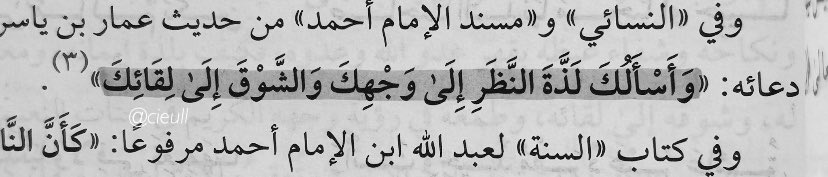 وفي «النسائي» و«مسند الإمام أحمد» من حديث عمار بن ياسر
دعائه: «وَأَسْأَلُكَ لَذَّةَ النَّظَرِ إِلَىٰ وَجْهِكَ وَالشَّوْقَ إِلَىٰ لِقَائِكَ»(٣).
@cieull
وفي كتاب «السنة» لعبد الله ابن الإمام أحمد مرفوعًا: «كَأَنَّ